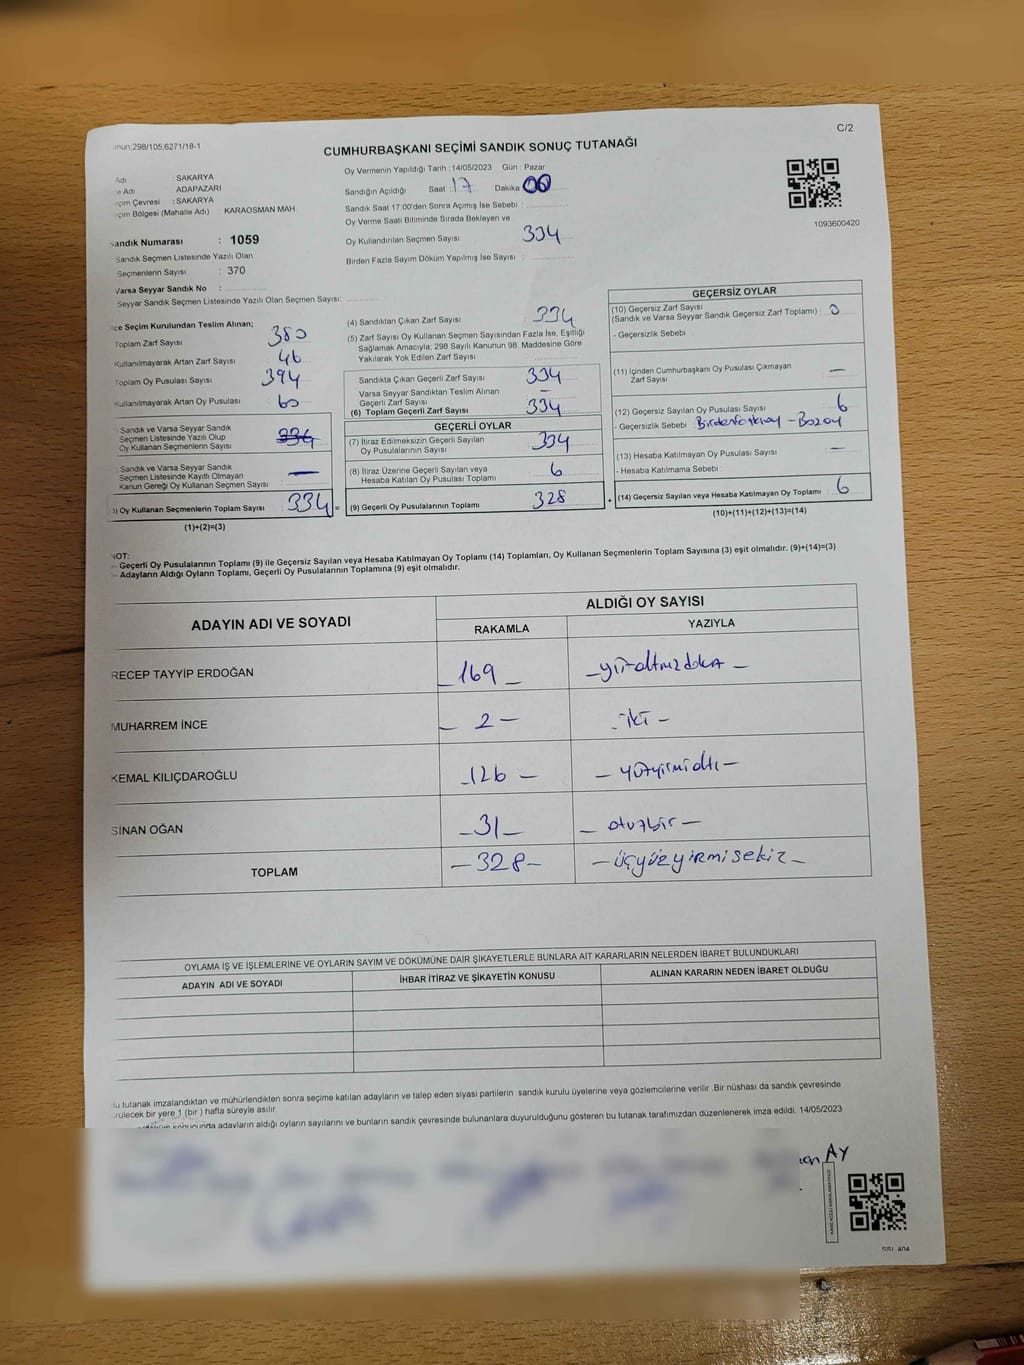 C/2
298/105,6271/18-1
CUMHURBAŞKANI SEÇİMİ SANDIK SONUÇ TUTANAĞI
Adı : SAKARYA
Adı : ADAPAZARI
Çevresi : SAKARYA
Bölgesi (Mahalle Adı) : KARAOSMAN MAH.
Sandık Numarası : 1059
Sandık Seçmen Listesinde Yazılı Olan
Seçmenlerin Sayısı : 370
Varsa Seyyar Sandık No :
Seyyar Sandık Seçmen Listesinde Yazılı Olan Seçmen Sayısı:
Oy Vermenin Yapıldığı Tarih : 14/05/2023 Gün : Pazar
Sandığın Açıldığı Saat 17 Dakika 00
Sandık Saat 17:00'den Sonra Açımış İse Sebebi :
Oy Verme Saati Bitiminde Sırada Bekleyen ve
Oy Kullandırılan Seçmen Sayısı 334
Birden Fazla Sayım Döküm Yapılmış İse Sayısı :
1093600420
Seçim Kurulundan Teslim Alınan;
Toplam Zarf Sayısı 380
Kullanılmayarak Artan Zarf Sayısı 46
Toplam Oy Pusulası Sayısı 394
Kullanılmayarak Artan Oy Pusulası 60
Sandık ve Varsa Seyyar Sandık
Seçmen Listesinde Yazılı Olup
Oy Kullanan Seçmenlerin Sayısı 334
Sandık ve Varsa Seyyar Sandık
Seçmen Listesinde Kayıtlı Olmayan
Kanun Gereği Oy Kullanan Seçmen Sayısı : —
) Oy Kullanan Seçmenlerin Toplam Sayısı : 334 =
(1)+(2)=(3)
(4) Sandıktan Çıkan Zarf Sayısı : 334
(5) Zarf Sayısı Oy Kullanan Seçmen Sayısından Fazla İse, Eşitliği
Sağlamak Amacıyla; 298 Sayılı Kanunun 98. Maddesine Göre
Yakılarak Yok Edilen Zarf Sayısı :
Sandıkta Çıkan Geçerli Zarf Sayısı 334
Varsa Seyyar Sandıktan Teslim Alınan
Geçerli Zarf Sayısı : —
(6) Toplam Geçerli Zarf Sayısı : 334
GEÇERLİ OYLAR
(7) İtiraz Edilmeksizin Geçerli Sayılan
Oy Pusulalarının Sayısı : 334
(8) İtiraz Üzerine Geçerli Sayılan veya
Hesaba Katılan Oy Pusulası Toplamı : 6
(9) Geçerli Oy Pusulalarının Toplamı : 328 +
GEÇERSİZ OYLAR
(10) Geçersiz Zarf Sayısı
(Sandık ve Varsa Seyyar Sandık Geçersiz Zarf Toplamı) : 0
- Geçersizlik Sebebi :
(11) İçinden Cumhurbaşkanı Oy Pusulası Çıkmayan
Zarf Sayısı : —
(12) Geçersiz Sayılan Oy Pusulası Sayısı : 6
- Geçersizlik Sebebi :
(13) Hesaba Katılmayan Oy Pusulası Sayısı : —
- Hesaba Katılmama Sebebi :
(14) Geçersiz Sayılan veya Hesaba Katılmayan Oy Toplamı : 6
(10)+(11)+(12)+(13)=(14)
NOT:
- Geçerli Oy Pusulalarının Toplamı (9) ile Geçersiz Sayılan veya Hesaba Katılmayan Oy Toplamı (14) Toplamları, Oy Kullanan Seçmenlerin Toplam Sayısına (3) eşit olmalıdır. (9)+(14)=(3)
- Adayların Aldığı Oyların Toplamı, Geçerli Oy Pusulalarının Toplamına (9) eşit olmalıdır.
ADAYIN ADI VE SOYADI
ALDIĞI OY SAYISI
RAKAMLA YAZIYLA
RECEP TAYYİP ERDOĞAN — 169 — — yüzaltmışdokuz —
MUHARREM İNCE — 2 — — iki —
KEMAL KILIÇDAROĞLU — 126 — — yüzyirmialtı —
SİNAN OĞAN — 31 — — otuzbir —
TOPLAM — 328 — — üçyüzyirmisekiz —
OYLAMA İŞ VE İŞLEMLERİNE VE OYLARIN SAYIM VE DÖKÜMÜNE DAİR ŞİKAYETLERLE BUNLARA AİT KARARLARIN NELERDEN İBARET BULUNDUKLARI
ADAYIN ADI VE SOYADI İHBAR İTİRAZ VE ŞİKAYETİN KONUSU ALINAN KARARIN NEDEN İBARET OLDUĞU
tutanak imzalandıktan ve mühürlendikten sonra seçime katılan adayların ve talep eden siyasi partilerin sandık kurulu üyelerine veya gözlemcilerine verilir. Bir nüshası da sandık çevresinde
bir yere 1 (bir) hafta süreyle asılır.
adayların aldığı oyların sayılarını ve bunların sandık çevresinde bulunanlara duyurulduğunu gösteren bu tutanak tarafımızdan düzenlenerek imza edildi. 14/05/2023
AY